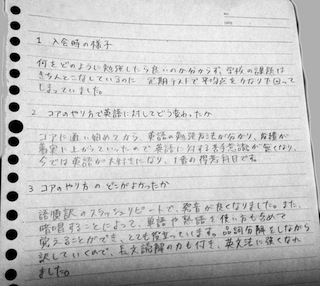 1 入会時の様子
何をどのように勉強したら良いのか分からず、学校の課題は
きちんとこなしているのに 定期テストで平均点をかなり下回って
しまっていました。
2 コアのやり方で英語に対してどう変わったか
コアに通い始めてから、英語の勉強方法が分かり、成績が
着実に上がっていったので英語に対する苦手意識が無くなり、
今では英語が大好きになり、1番の得意科目です。
3 コアのやり方の どこがよかったか
語順訳のスラッシュリピートで、発音が良くなりました。また、
暗唱することによって、単語や熟語を使い方も含めて
覚えることができ、とても役立っています。品詞分解をしながら
訳していくので、長文読解の力も付き、英文法に強くなれ
ました。